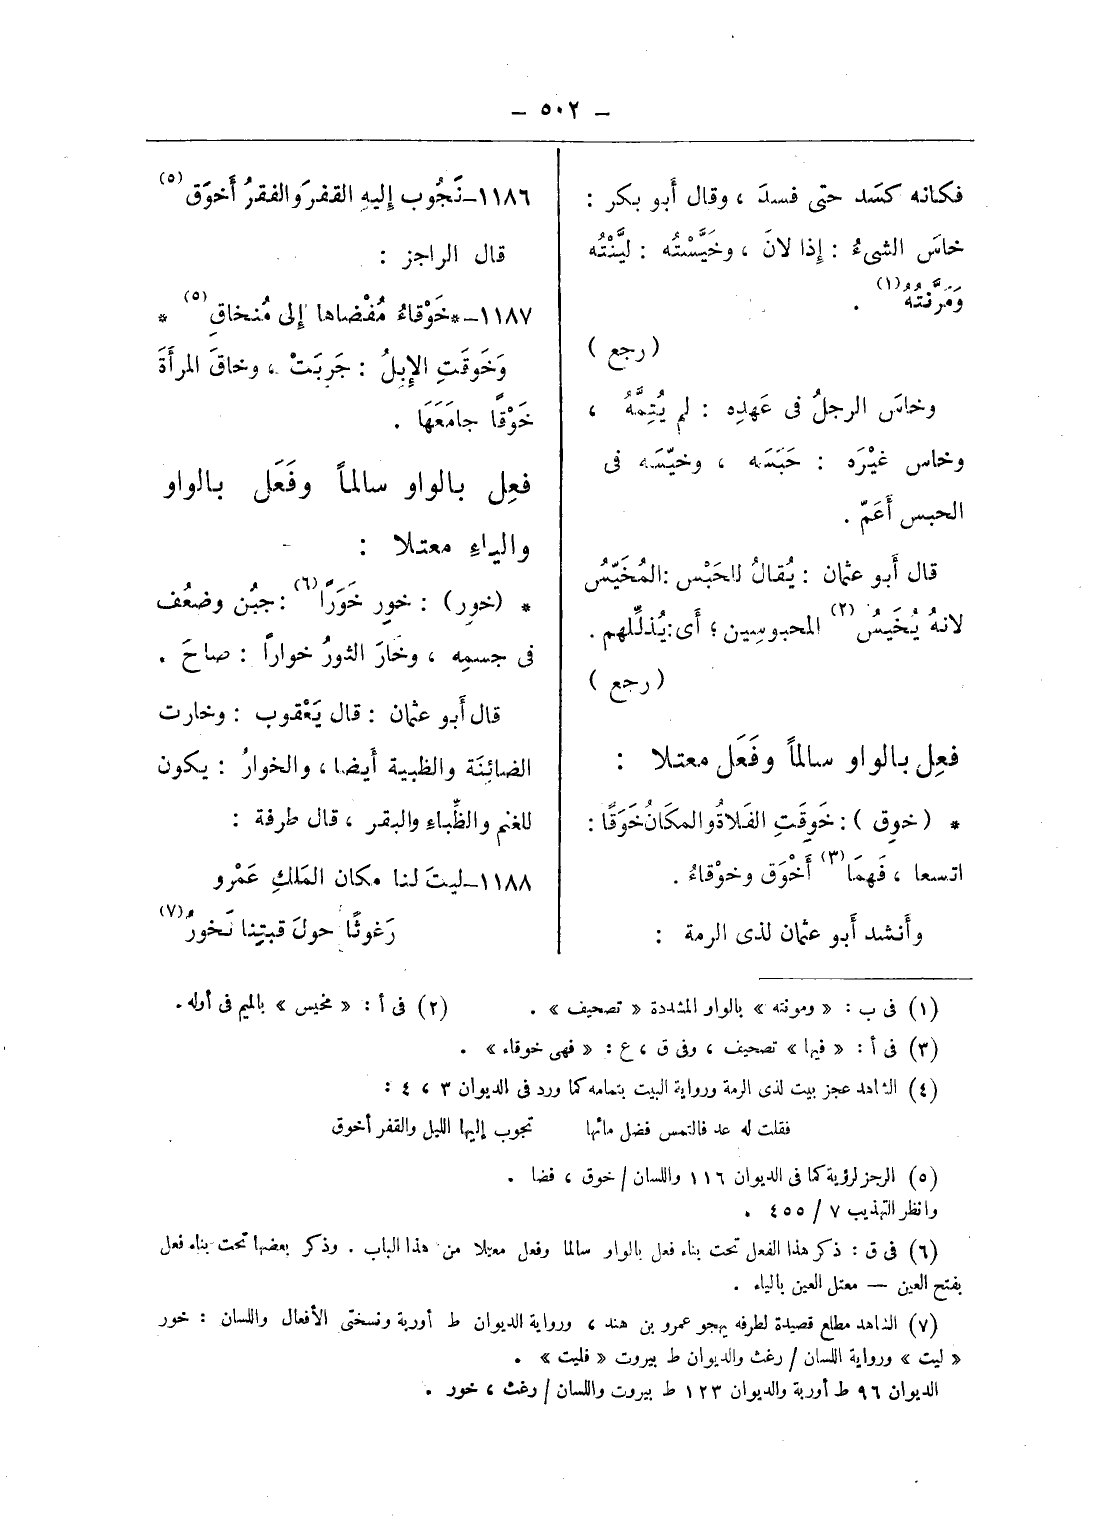 — ٥٠٢ —
فكانه كسَد حتى فسدَ ، وقال أَبو بكر :
خاسَ الشىءُ : إِذا لانَ ، وخَيَّسْتُه : ليَّنْتُه
وَمَرَّنتُهُ (١) .
( رجع )
وخاسَ الرجلُ فى عَهدِه : لم يُتِمَّهُ ،
وخاس غيْرَه : حَبَسَه ، وخيّسَه فى
الحبس أَعَمّ .
قال أَبو عثمان : يُقالُ للحَبْس : المُخَيّسُ
لانهُ يُخَيسُ (٢) المحبوسِين ؛ أَى : يُذلِّلهم .
( رجع )
فعِل بالواو سالماً وفَعَل معتلا :
* ( خوِق ) : خَوِقَتِ الفَلاةُ والمكَانُ خَوَقًا :
اتسعا ، فَهمَا (٣) أَخْوَق وخوْقاءُ .
وأَنشد أَبو عثمان لذى الرمة :
١١٨٦ـ نَجُوب إِليهِ القفرَ والفقرُ أَخوَق (٥)
قال الراجز :
١١٨٧ـ * خَوْقاءُ مُفْضاها إِلى مُنخاقِ (٥) *
وَخَوقَتِ الإِبلُ : جَرِبَتْ ، وخاقَ المرأَةَ
خَوْقًا جامَعَهَا .
فعِل بالواو سالماً وفَعَل بالواو
والياءِ معتلا :
* ( خوِر ) : خوِر خَوَرًا (٦) : جبُن وضعُف
فى جسمِه ، وخارَ الثورُ خواراً : صاحَ .
قال أَبو عثمان : قال يَعْقوب : وخارت
الضائِنَة والظبية أَيضا ، والخوارُ : يكون
للغنم والظِّباءِ والبقر ، قال طرفة :
١١٨٨ـ ليتَ لنا مكان المَلكِ عَمْرو
رَغوثًا حولَ قبتِنا نَخورُ (٧)
(١) فى ب : « ومونته » بالواو المشددة « تصحيف » . (٢) فى أ : « مخيس » بالميم فى أوله .
(٣) فى أ : « فيها » تصحيف ، وفى ق ، ع : « فهى خوقاء » .
(٤) الشاهد عجز بيت لذى الرمة ورواية البيت بتمامه كما ورد فى الديوان ٣ ، ٤ :
فقلت له عد فالتمس فضل مائها تجوب إليها الليل والقفر أخوق
(٥) الرجز لرؤية كما فى الديوان ١١٦ واللسان / خوق ، فضا .
وانظر التهذيب ٧ / ٤٥٥ .
(٦) فى ق : ذكر هذا الفعل تحت بناء فعل بالواو سالما وفعل معتلا من هذا الباب . وذكر بعضها تحت بناء فعل
بفتح العين — معتل العين بالياء .
(٧) الشاهد مطلع قصيدة لطرفه يهجو عمرو بن هند ، ورواية الديوان ط أوربة ونسختى الأفعال واللسان : خور
« ليت » ورواية اللسان / رغث والديوان ط بيروت « فليت » .
الديوان ٩٦ ط أوربة والديوان ١٢٣ ط بيروت واللسان / رغث ، خور .